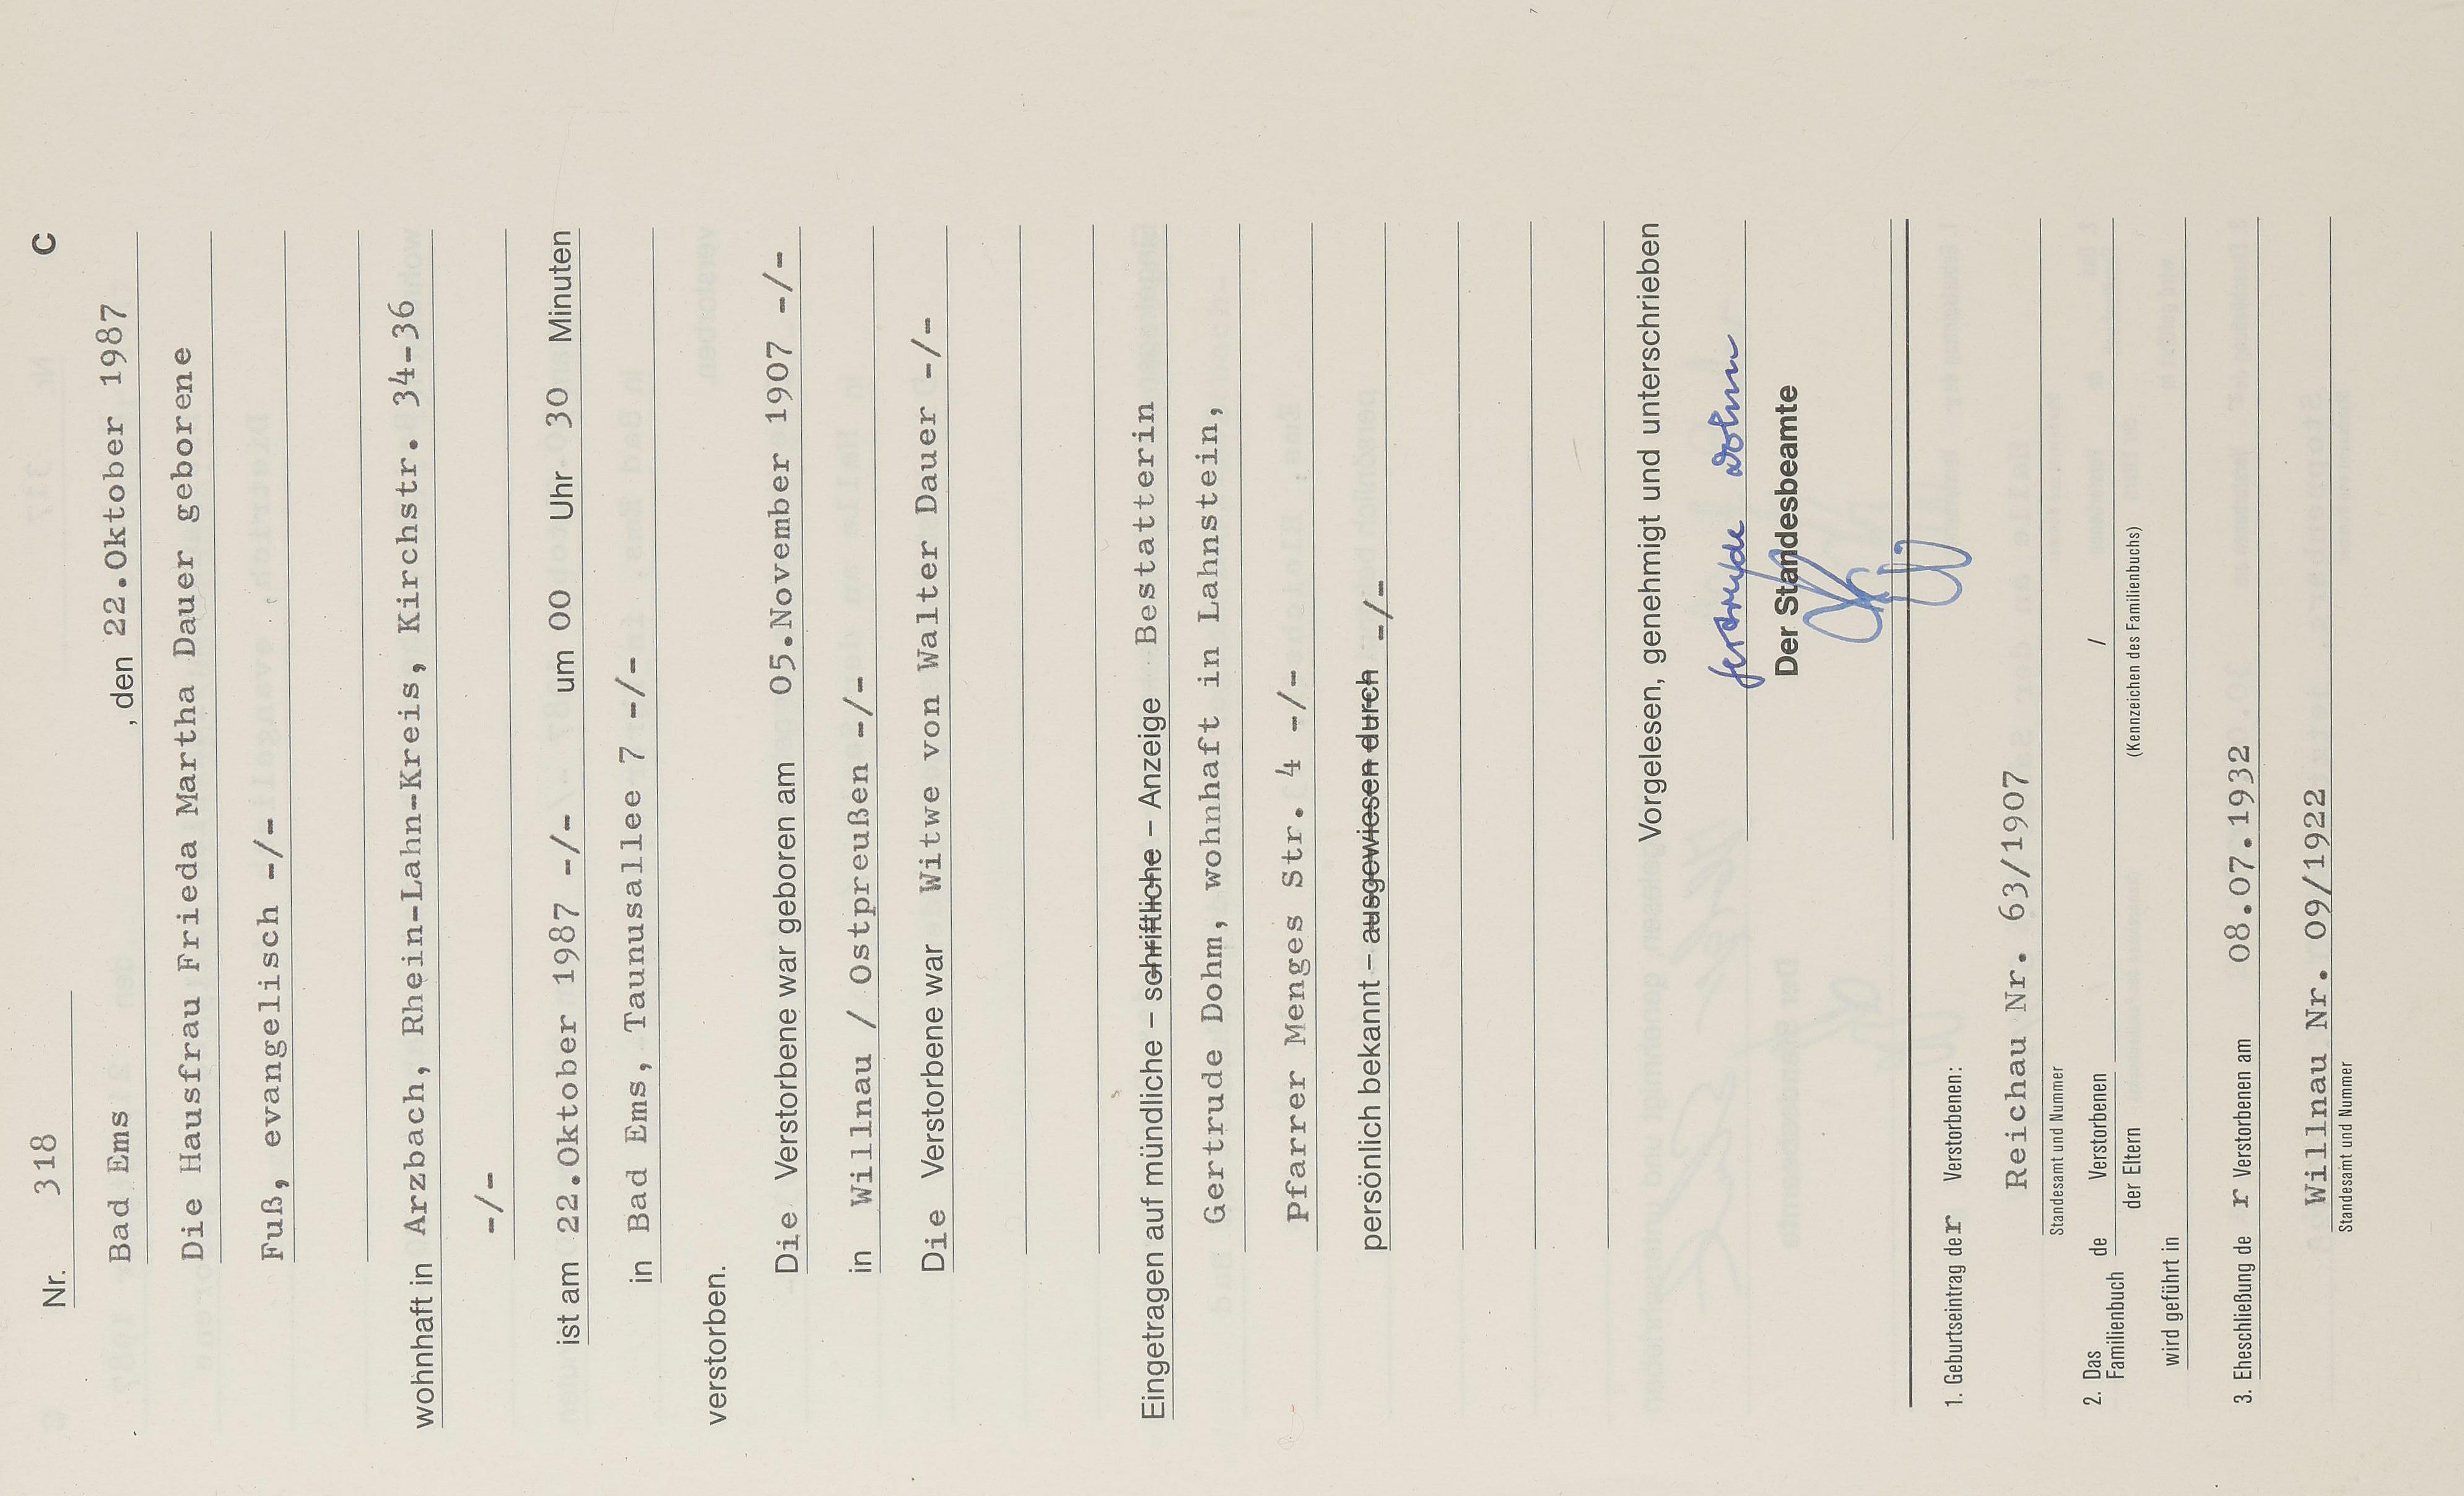 Nr. 318 C
Bad Ems , den 22.Oktober 1987
Die Hausfrau Frieda Martha Dauer geborene
Fuß, evangelisch -/-
wohnhaft in Arzbach, Rhein-Lahn-Kreis, Kirchstr. 34-36
-/-
ist am 22.Oktober 1987 -/- um 00 Uhr 30 Minuten
in Bad Ems, Taunusallee 7 -/-
verstorben.
Die Verstorbene war geboren am 05.November 1907 -/-
in Willnau / Ostpreußen -/-
Die Verstorbene war Witwe von Walter Dauer -/-
Eingetragen auf mündliche – schriftliche – Anzeige Bestatterin
Gertrude Dohm, wohnhaft in Lahnstein,
Pfarrer Menges Str. 4 -/-
persönlich bekannt – ausgewiesen durch -/-
Vorgelesen, genehmigt und unterschrieben
Gertrude Dohm
Der Standesbeamte
1. Geburtseintrag der Verstorbenen:
Reichau Nr. 63/1907
Standesamt und Nummer
2. Das Familienbuch de Verstorbenen /
der Eltern (Kennzeichen des Familienbuchs)
wird geführt in
3. Eheschließung de r Verstorbenen am 08.07.1932
Willnau Nr. 09/1922
Standesamt und Nummer